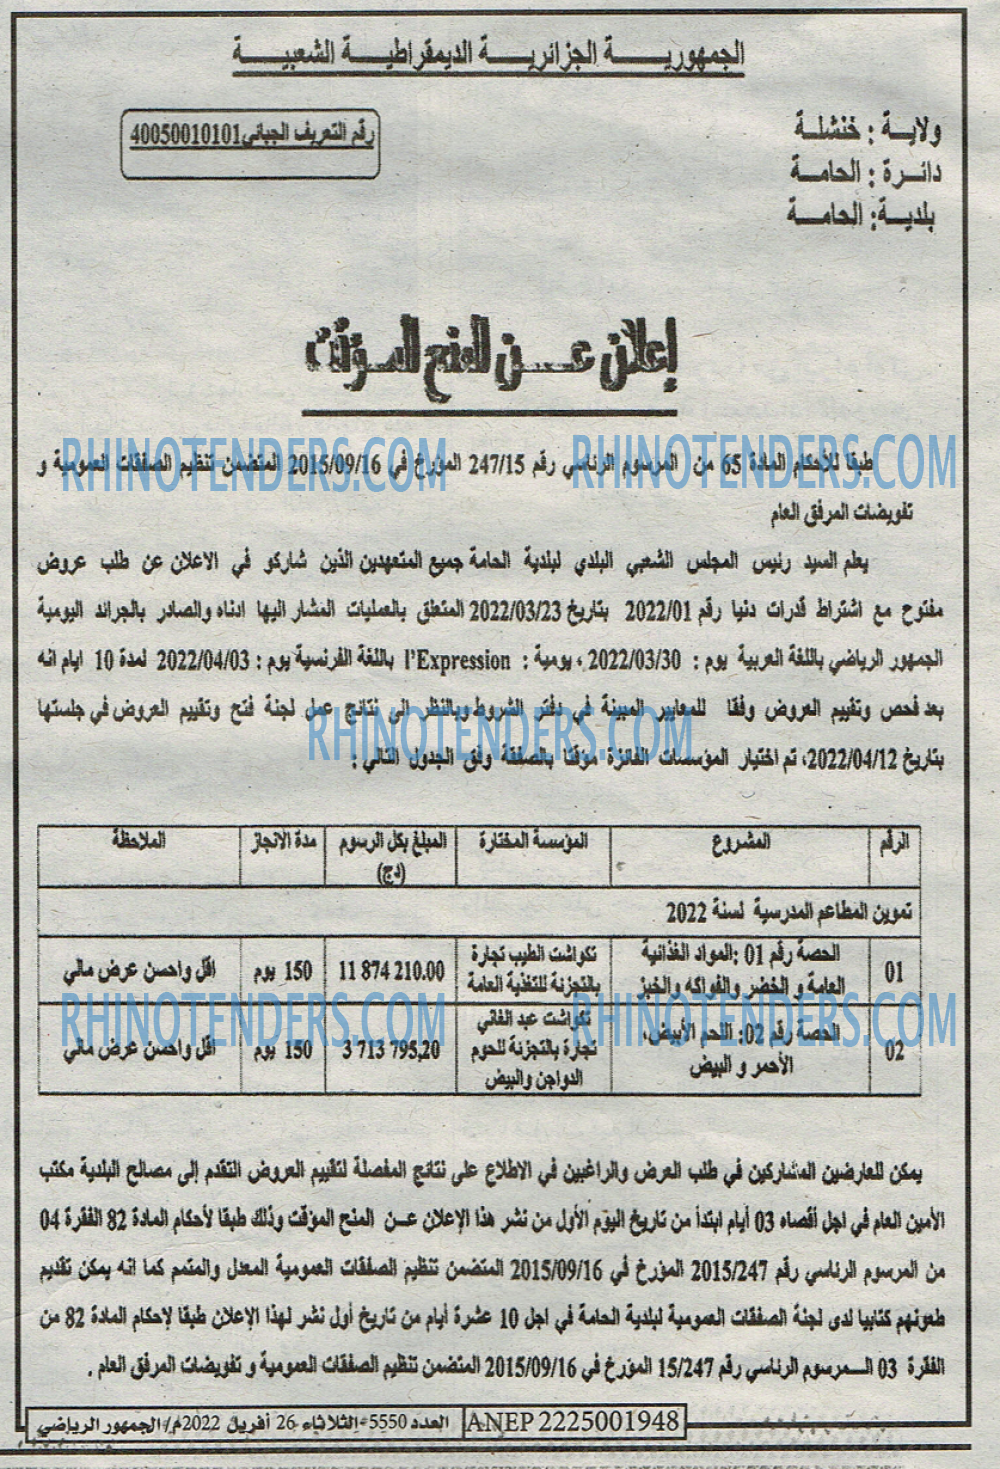 الجمهورية الجزائرية الديمقراطية الشعبية
ولاية : خنشلة
رقم التعريف الجبائي 40050010101
دائرة : الحامة
بلدية: الحامة
إعلان عن المنح المؤقت
طبقا للأحكام المادة 65 من المرسوم الرئاسي رقم 247/15 المؤرخ في 2015/09/16 المتضمن تنظيم الصفقات العمومية و
تفويضات المرفق العام
يعلم السيد رئيس المجلس الشعبي البلدي لبلدية الحامة جميع المتعهدين الذين شاركو في الاعلان عن طلب عروض
مفتوح مع اشتراط قدرات دنيا رقم 2022/01 بتاريخ 2022/03/23 المتعلق بالعمليات المشار اليها ادناه والصادر بالجرائد اليومية
الجمهور الرياضي باللغة العربية يوم : 2022/03/30 ، يومية : l'Expression باللغة الفرنسية يوم : 2022/04/03 لمدة 10 ايام انه
بعد فحص وتقييم العروض وفقا للمعايير المبينة في دفتر الشروط وبالنظر الى نتائج عمل لجنة فتح وتقييم العروض في جلستها
بتاريخ 2022/04/12، تم اختيار المؤسسات الفائزة موقتا بالصفقة وفق الجدول التالي :
الرقم المشروع المؤسسة المختارة المبلغ بكل الرسوم (دج) مدة الانجاز الملاحظة
تموين المطاعم المدرسية لسنة 2022
01 الحصة رقم 01 :المواد الغذائية العامة و الخضر والفواكه والخبز تكواشت الطيب تجارة بالتجزئة للتغذية العامة 11 874 210.00 150 يوم اقل واحسن عرض مالي
02 الحصة رقم 02: اللحم الأبيض، الأحمر و البيض تكواشت عبد الغاني تجارة بالتجزئة للحوم الدواجن والبيض 3 713 795,20 150 يوم اقل واحسن عرض مالي
يمكن للعارضين المشاركين في طلب العرض والراغبين في الاطلاع على نتائج المفصلة لتقييم العروض التقدم إلى مصالح البلدية مكتب
الأمين العام في اجل أقصاه 03 أيام ابتدأ من تاريخ اليوم الأول من نشر هذا الإعلان عن المنح الموقت وذلك طبقا لأحكام المادة 82 الفقرة 04
من المرسوم الرئاسي رقم 2015/247 المؤرخ في 2015/09/16 المتضمن تنظيم الصفقات العمومية المعدل والمتمم كما انه يمكن تقديم
طعونهم كتابيا لدى لجنة الصفقات العمومية لبلدية الحامة في اجل 10 عشرة أيام من تاريخ أول نشر لهذا الإعلان طبقا لإحكام المادة 82 من
الفقرة 03 المرسوم الرئاسي رقم 15/247 المؤرخ في 2015/09/16 المتضمن تنظيم الصفقات العمومية و تفويضات المرفق العام .
ANEP 2225001948
العدد 5550-الثلاثاء 26 أفريل 2022م/ الجمهور الرياضي
RHINOTENDERS.COM
RHINOTENDERS.COM
RHINOTENDERS.COM
RHINOTENDERS.COM
RHINOTENDERS.COM